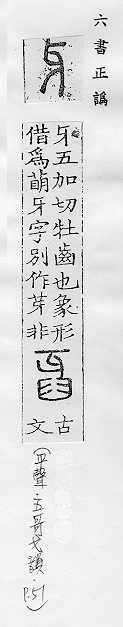 六書正譌
牙
牙五加切牡齒也象形
借爲萌牙字別作芽非
古
文
(平聲.哥戈韻.
P.51)